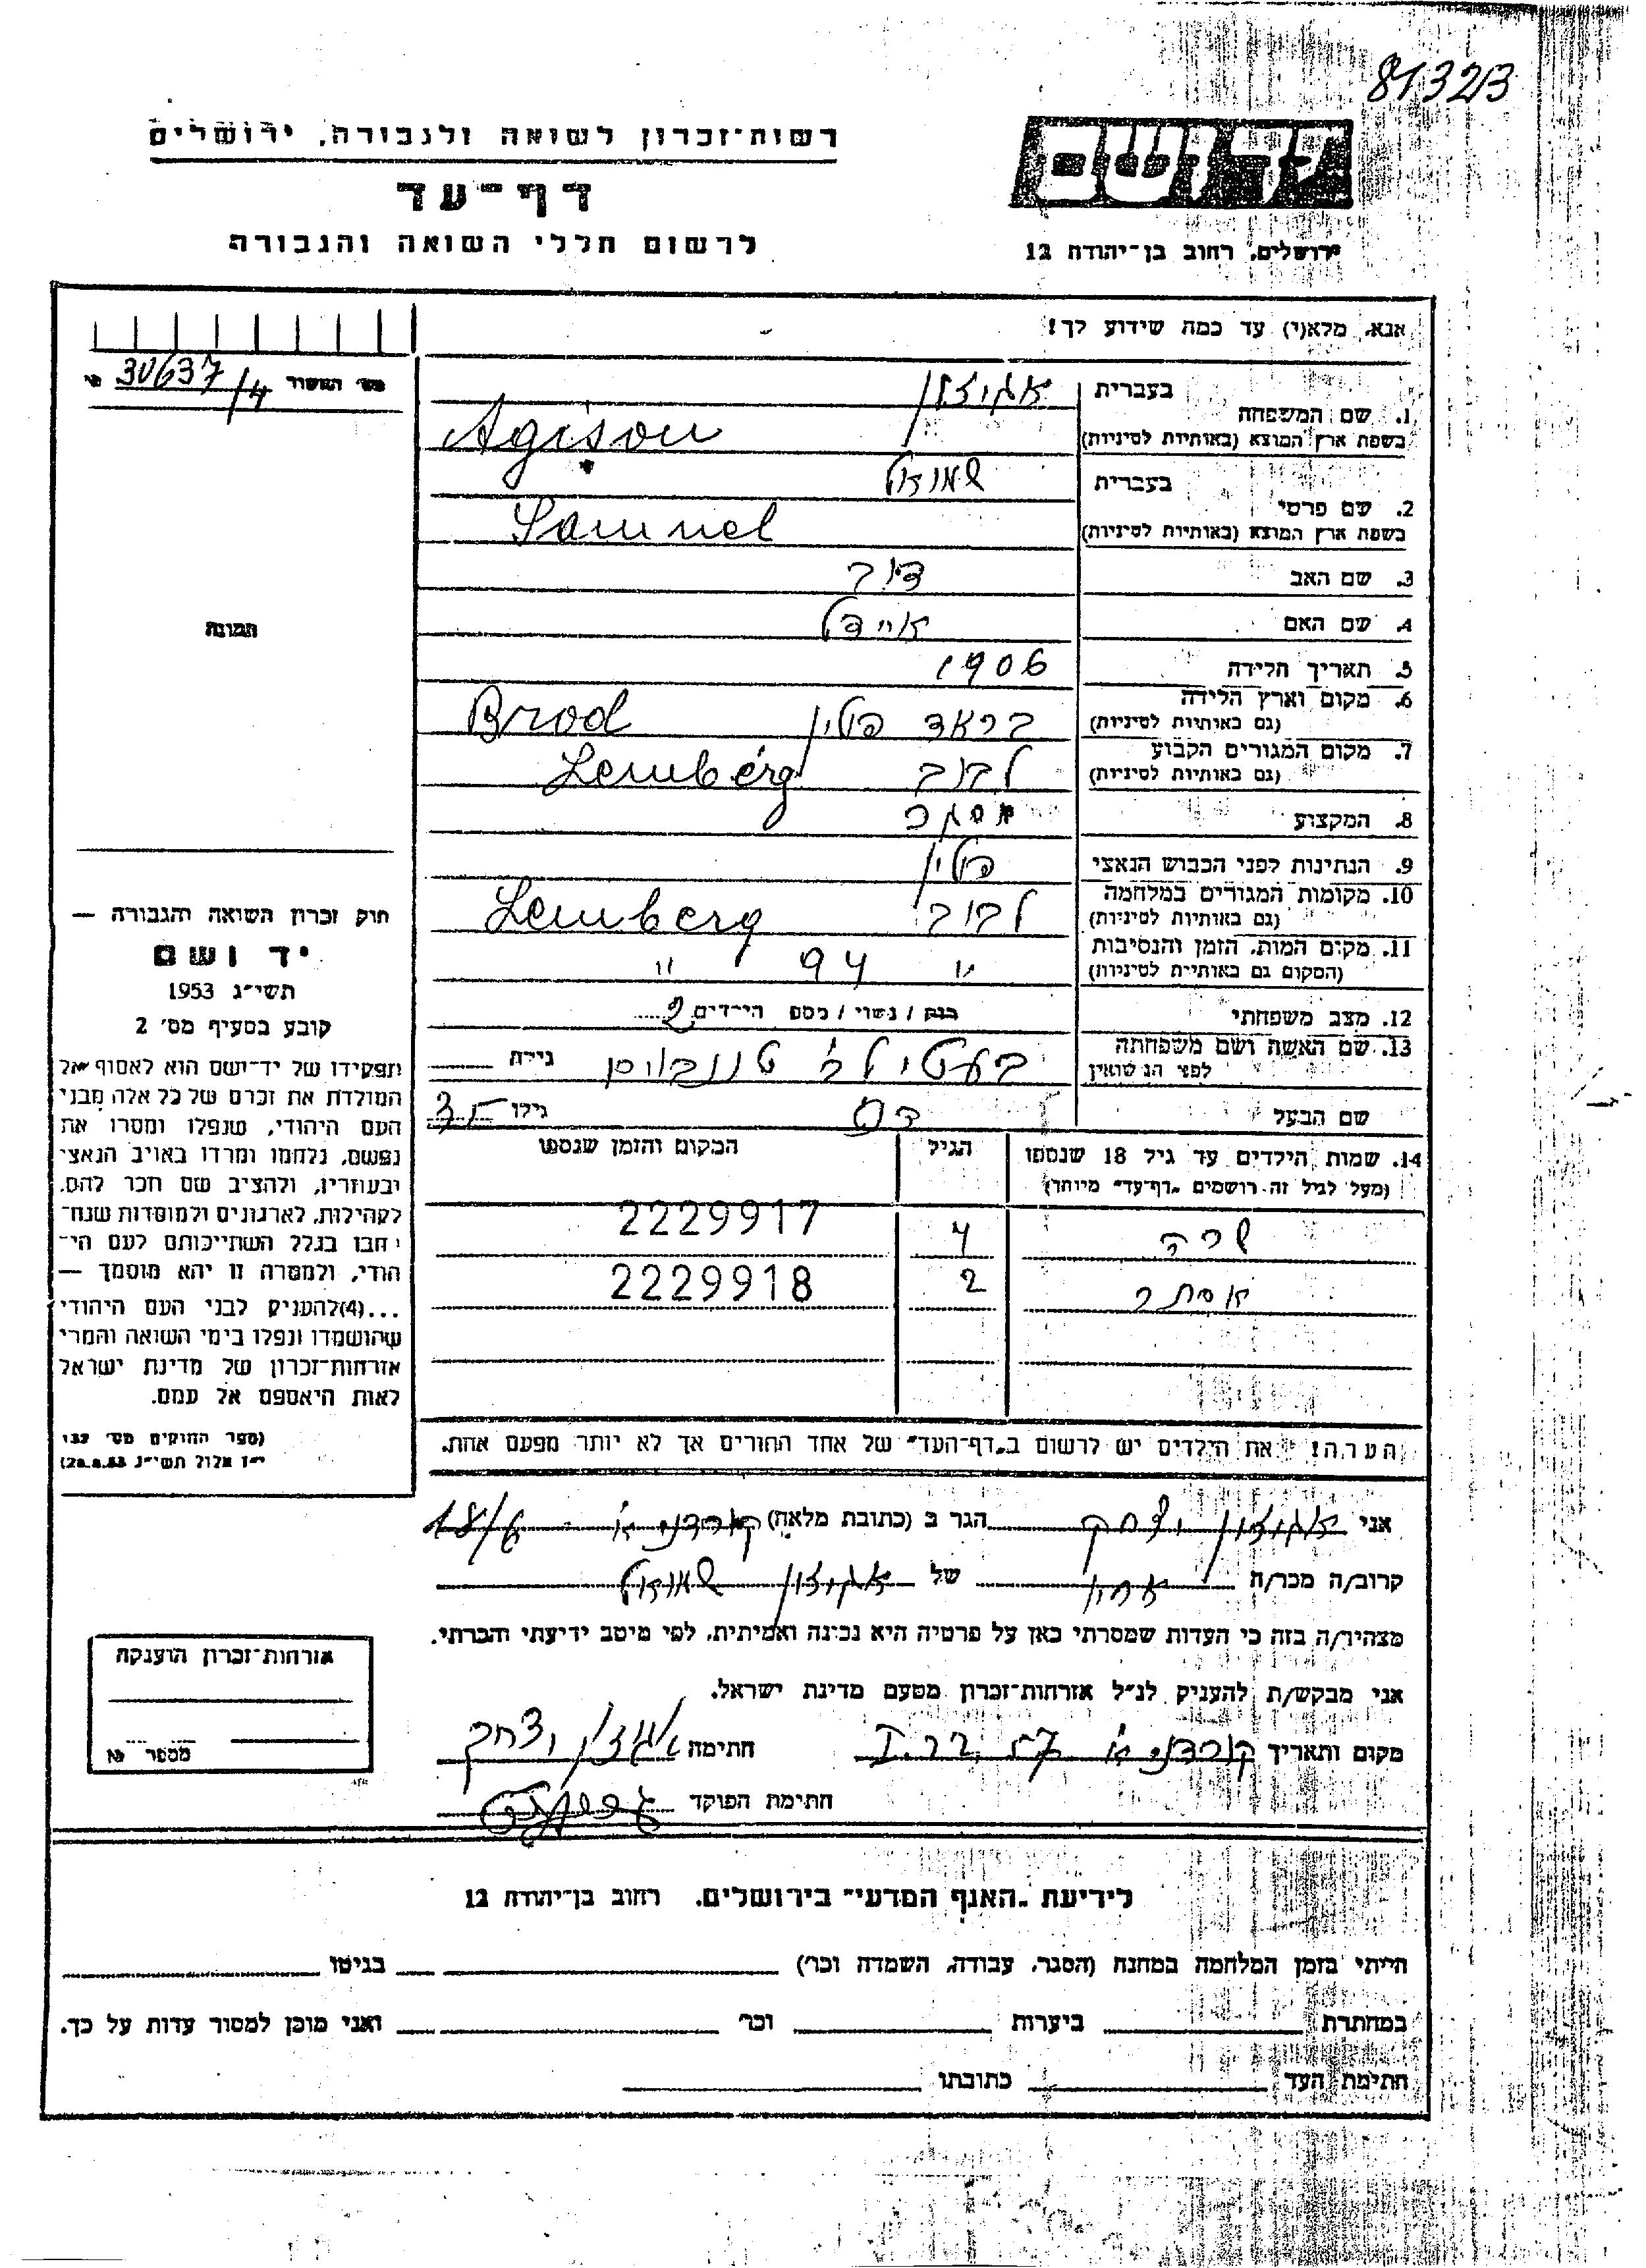 81323
רשות־זכרון לשואה ולגבורה, ירושלים
דף־עד
לרשום חללי השואה והגבורה
יד ושם
ירושלים, רחוב בן־יהודה 12
אנא, מלא(י) עד כמה שידוע לך!
מס׳ האשור 30637/4
בעברית
1. שם המשפחה
בשפת ארץ המוצא (באותיות לטיניות)
Agison
2. שם פרטי
בעברית שמואל
בשפת ארץ המוצא (באותיות לטיניות)
Samuel
3. שם האב דוב
4. שם האם איידל
5. תאריך הלידה 1906
6. מקום וארץ הלידה
(גם באותיות לטיניות) בראד פולין Brod
7. מקום המגורים הקבוע
(גם באותיות לטיניות) לבוב Lemberg
8. המקצוע מסגר
9. הנתינות לפני הכבוש הנאצי פולין
10. מקומות המגורים במלחמה
(גם באותיות לטיניות) לבוב Lemberg
11. מקום המות, הזמן והנסיבות
(המקום גם באותיות לטיניות) " 94 "
12. מצב משפחתי רווק / נשוי / מספר הילדים 2
13. שם האשה ושם משפחתה
לפני הנישואין טננבוים גילה
שם הבעל גילו 35
14. שמות הילדים עד גיל 18 שנספו
(מעל לגיל זה רושמים "דף־עד" מיוחד)
הגיל
המקום והזמן שנספו
שרה 4 2229917
אסתר 2 2229918
הערה! את הילדים יש לרשום ב"דף־העד" של אחד ההורים אך לא יותר מפעם אחת.
תמונה
חוק זכרון השואה והגבורה —
יד ושם
תשי״ג 1953
קובע בסעיף מס׳ 2
ותפקידו של יד־ושם הוא לאסוף אל
המולדת את זכרם של כל אלה מבני
העם היהודי, שנפלו ומסרו את
נפשם, נלחמו ומרדו באויב הנאצי
ובעוזריו, ולהציב שם וזכר להם,
לקהילות, לארגונים ולמוסדות שנח־
רבו בגלל השתייכותם לעם היה־
הודי, ולמטרה זו יהא מוסמך —
...(4)להעניק לבני העם היהודי
שהושמדו ונפלו בימי השואה והמרי
אזרחות־זכרון של מדינת ישראל
לאות היאספם אל עמם.
(ספר החוקים מס׳ 132
י״ז אלול תשי״ג 28.8.53)
אני יצחק הגר ב (כתובת מלאה) קורדני א 18/6
קרוב/ה מכר/ה אחיו של שמואל
מצהיר/ה בזה כי העדות שמסרתי כאן על פרטיה היא נכונה ואמיתית, לפי מיטב ידיעתי והכרתי.
אני מבקש/ת להעניק לנ״ל אזרחות־זכרון מטעם מדינת ישראל.
מקום ותאריך קורדני א חתימה יצחק
חתימת הפוקד
אזרחות־זכרון הוענקה
מספר №
לידיעת "האגף המדעי" בירושלים, רחוב בן־יהודה 12
הייתי בזמן המלחמה במחנה (הסגר, עבודה, השמדה וכו׳) בגיטו
במחתרת ביערות וכו׳ ואני מוכן למסור עדות על כך.
חתימת העד כתובתו